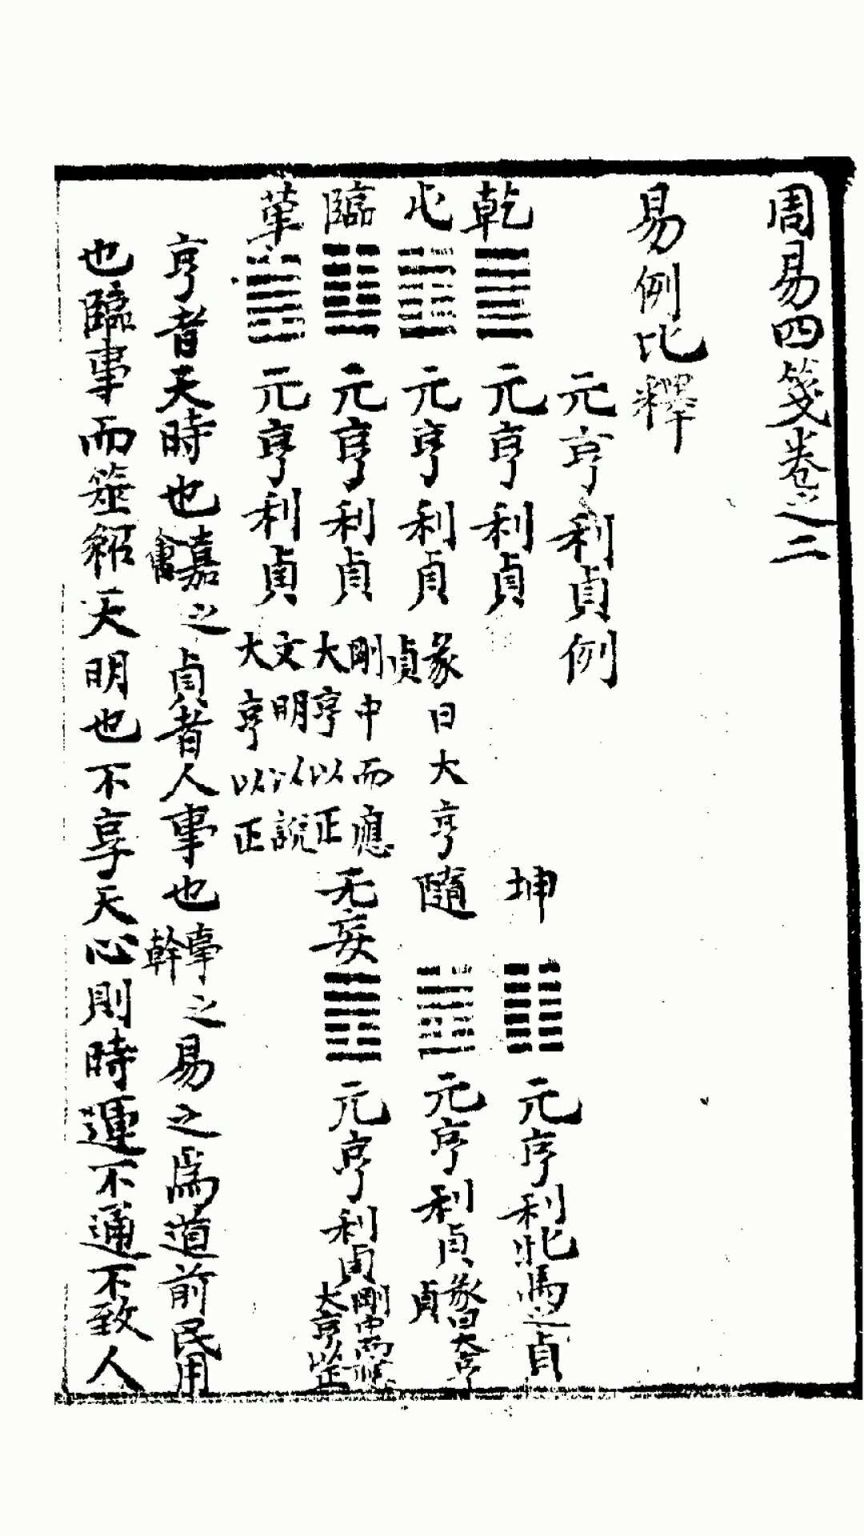 周易四箋卷之二
易例比釋
元亨利貞例
乾 ䷀ 元亨利貞 坤 ䷁ 元亨利牝馬之貞
屯 ䷂ 元亨利貞 彖曰大亨貞 隨 ䷐ 元亨利貞 彖曰大亨貞
臨 ䷒ 元亨利貞 剛中而應大亨以正 无妄 ䷘ 元亨利貞 剛中而應大亨以正
革 ䷰ 元亨利貞 文明以說大亨以正
亨者天時也嘉之會貞者人事也事之幹易之爲道前民用
也臨事而筮紹天明也不享天心則時運不通不致人